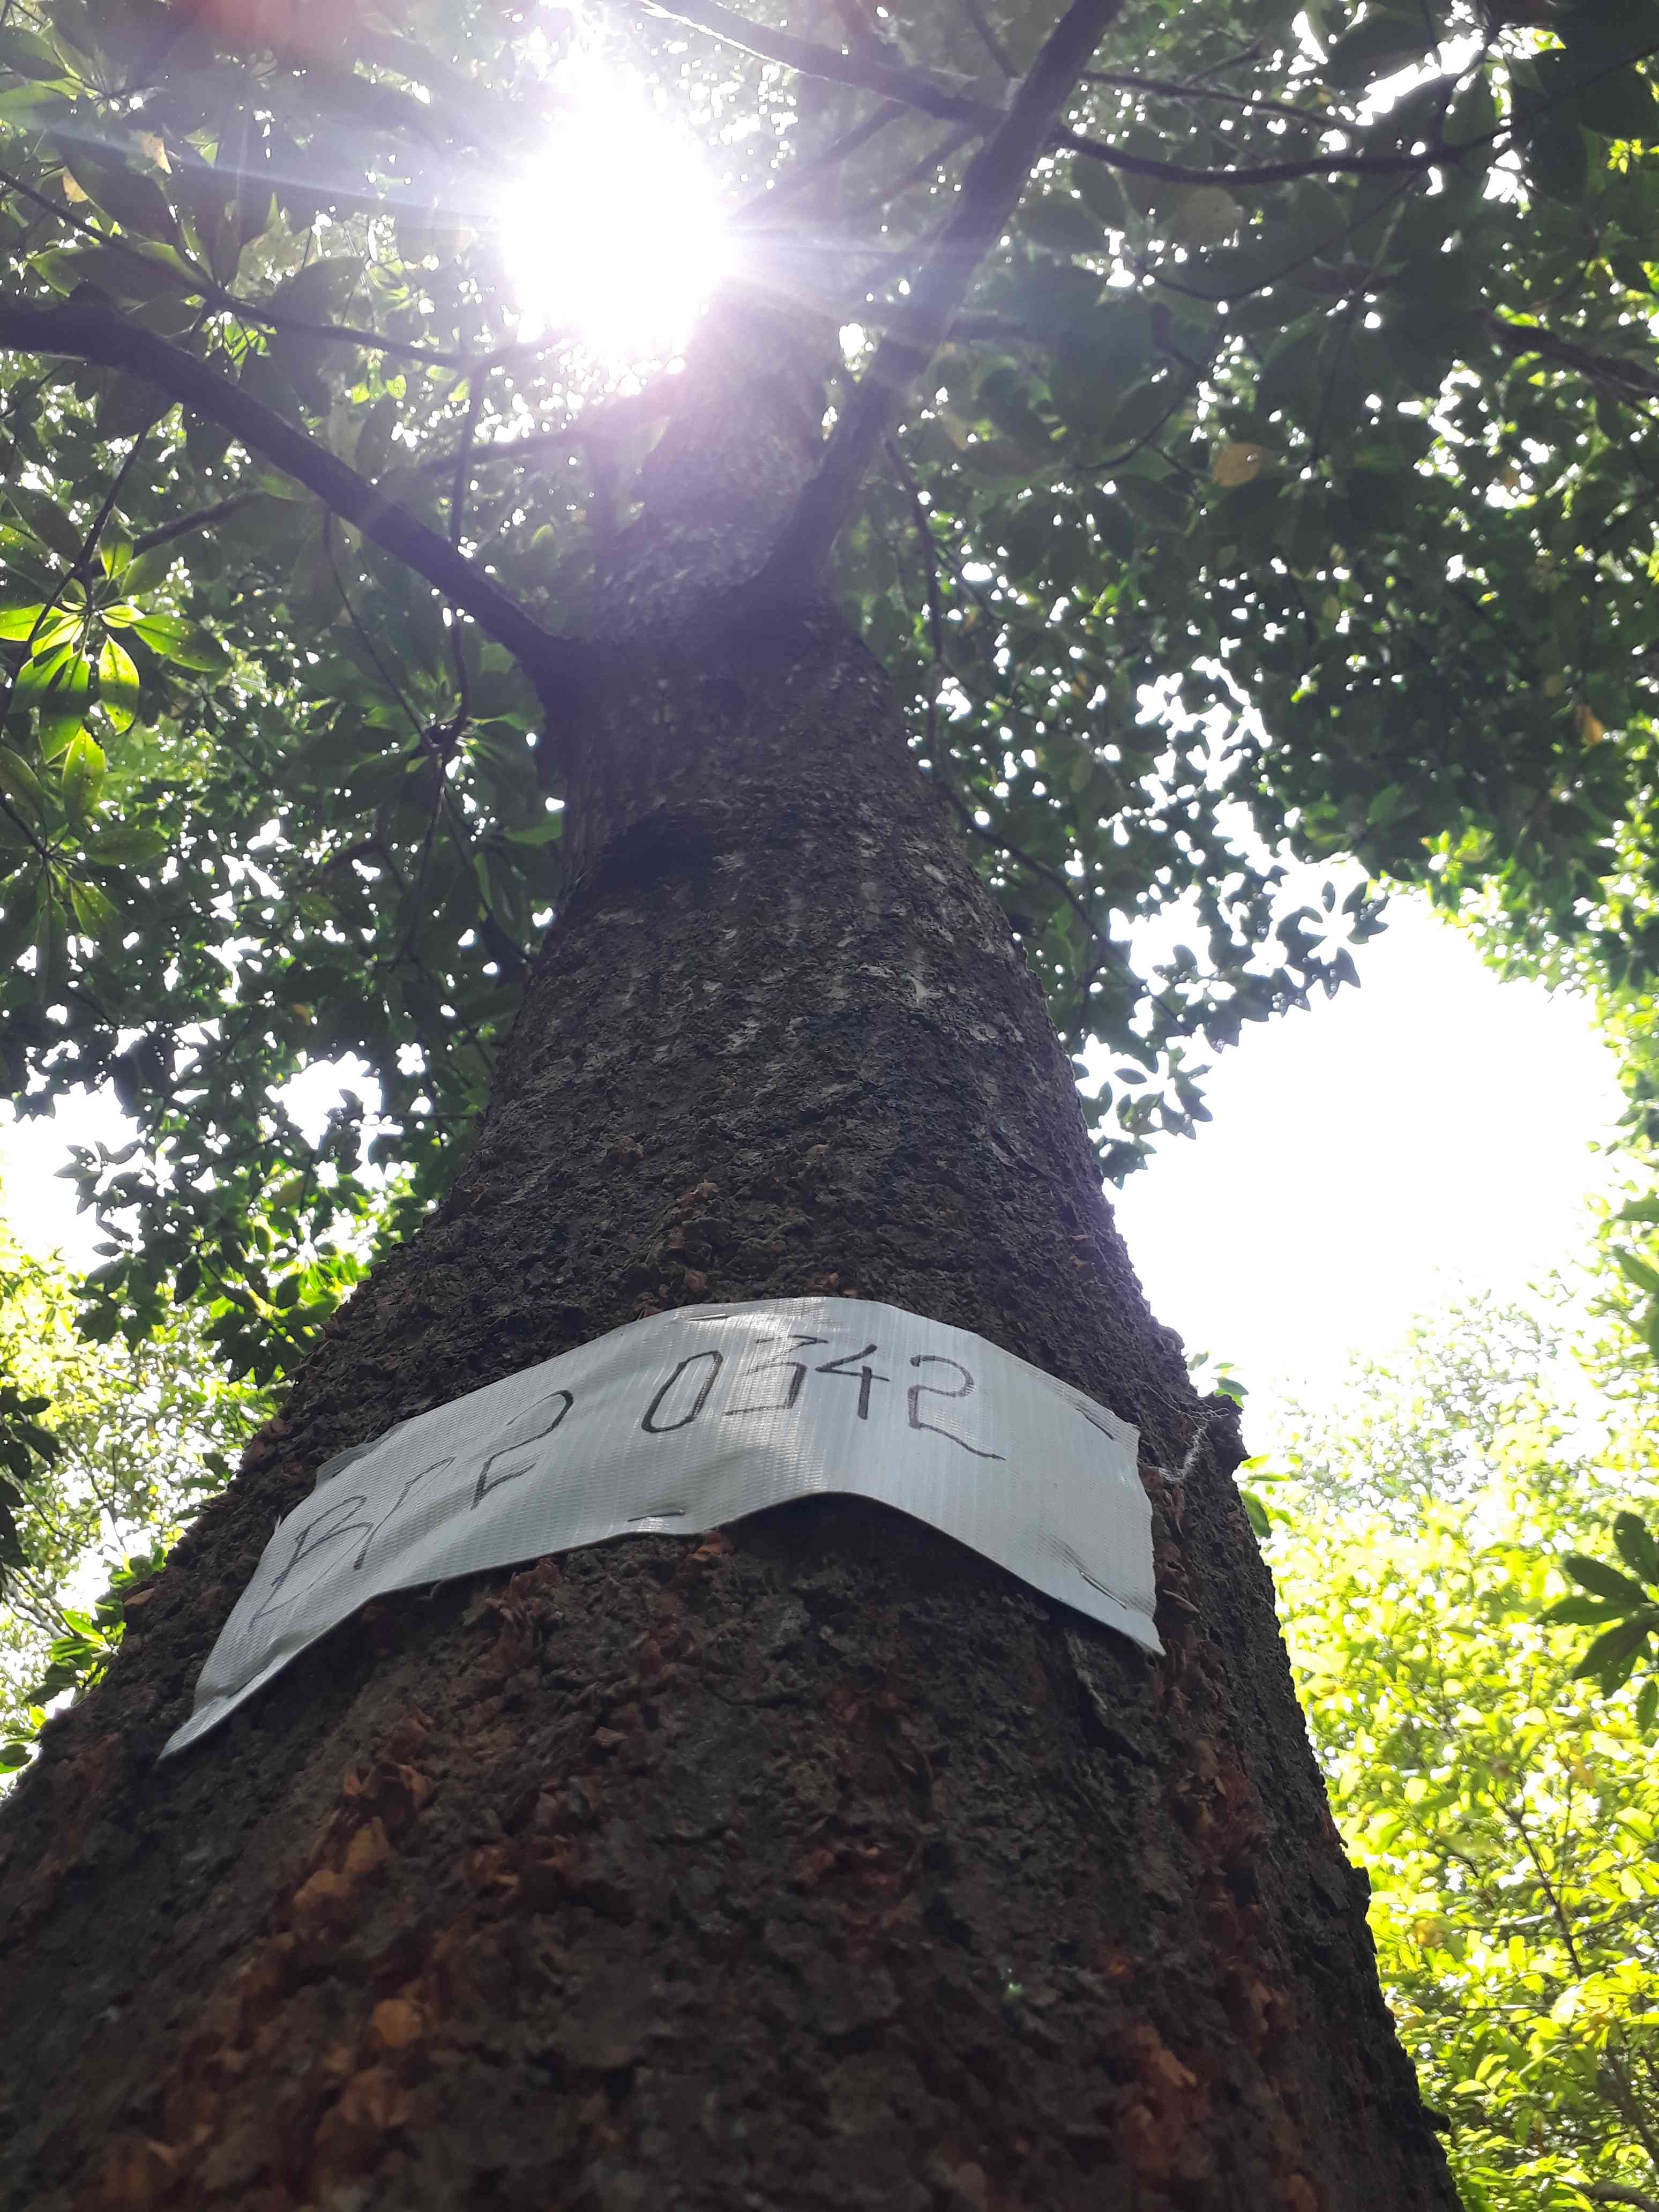 BΓ2 0342